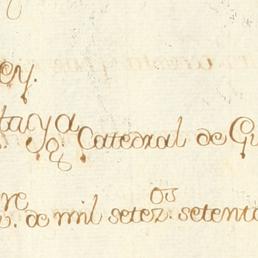 ey.
taya Catedral de Gu
re. de mil setez.os setenta